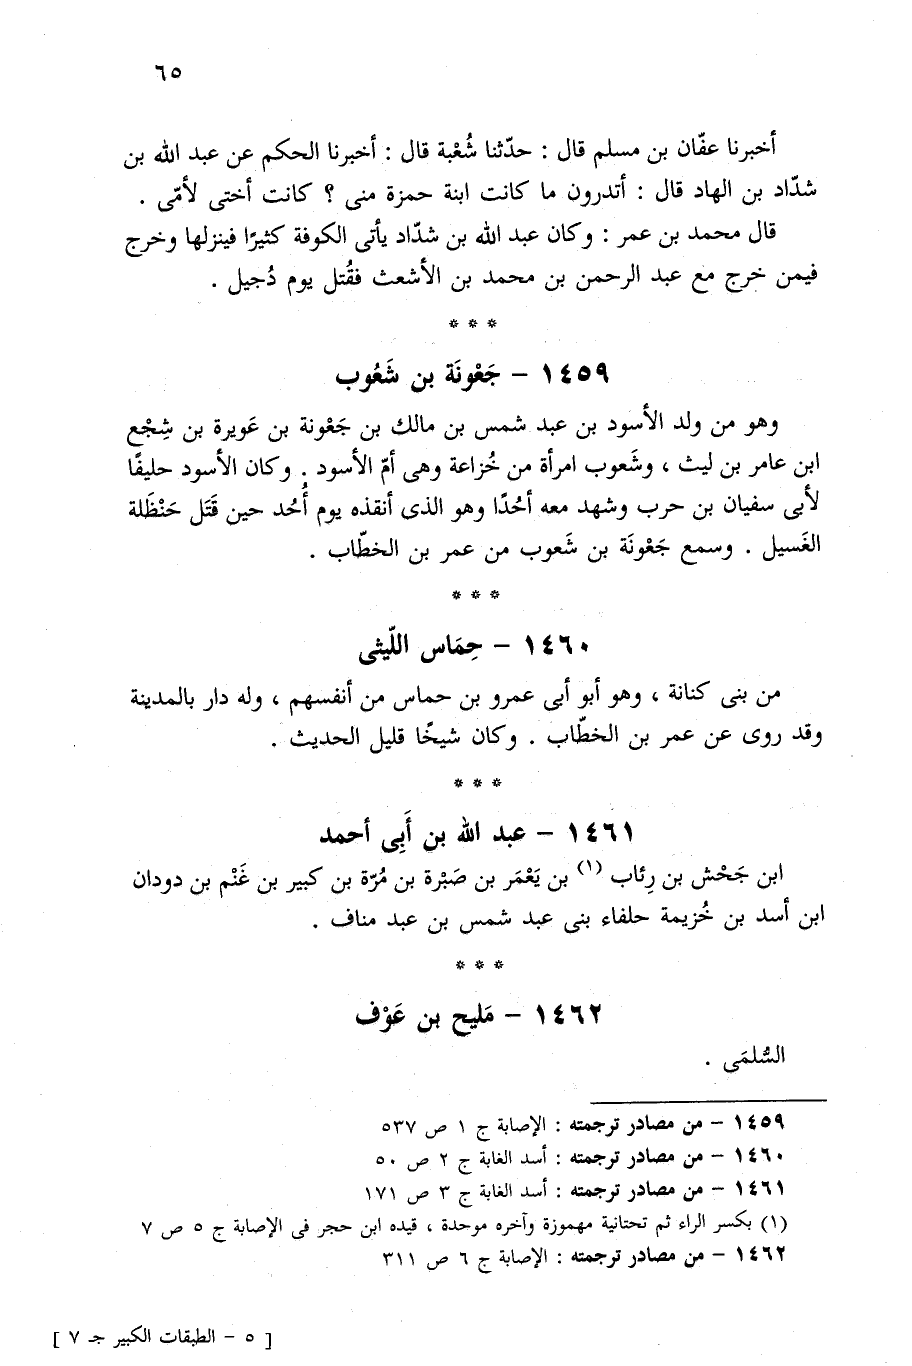 ٦٥
أخبرنا عفّان بن مسلم قال : حدّثنا شُعْبة قال : أخبرنا الحكم عن عبد الله بن
شدّاد بن الهاد قال : أتدرون ما كانت ابنة حمزة منى ؟ كانت أختى لأمّى .
قال محمد بن عمر : وكان عبد الله بن شدّاد يأتى الكوفة كثيرًا فينزلها وخرج
فيمن خرج مع عبد الرحمن بن محمد بن الأشعث فقُتل يوم دُجيل .
* * *
١٤٥٩ – جَعْونَة بن شَعُوب
وهو من ولد الأسود بن عبد شمس بن مالك بن جَعْونة بن عَويرة بن شِجْع
ابن عامر بن ليث ، وشَعوب امرأة من خُزاعة وهى أمّ الأسود . وكان الأسود حليفًا
لأبى سفيان بن حرب وشهد معه أحُدًا وهو الذى أنقذه يوم أُحُد حين قَتَل حَنْظَلة
الغَسيل . وسمع جَعْونَة بن شَعوب من عمر بن الخطّاب .
* * *
١٤٦٠ – حِمَاس اللّيثى
من بنى كنانة ، وهو أبو أبى عمرو بن حماس من أنفسهم ، وله دار بالمدينة
وقد روى عن عمر بن الخطّاب . وكان شيخًا قليل الحديث .
* * *
١٤٦١ – عبد الله بن أَبِى أحمد
ابن جَحْش بن رِئاب (١) بن يَعْمَر بن صَبْرة بن مُرّة بن كبير بن غَنْم بن دودان
ابن أسد بن خُزيمة حلفاء بنى عبد شمس بن عبد مناف .
* * *
١٤٦٢ – مَليح بن عَوْف
السُّلمَى .
١٤٥٩ – من مصادر ترجمته : الإصابة ج ١ ص ٥٣٧
١٤٦٠ – من مصادر ترجمته : أسد الغابة ج ٢ ص ٥٠
١٤٦١ – من مصادر ترجمته : أسد الغابة ج ٣ ص ١٧١
(١) بكسر الراء ثم تحتانية مهموزة وآخره موحدة ، قيده ابن حجر فى الإصابة ج ٥ ص ٧
١٤٦٢ – من مصادر ترجمته : الإصابة ج ٦ ص ٣١١
[ ٥ – الطبقات الكبير جـ ٧ ]